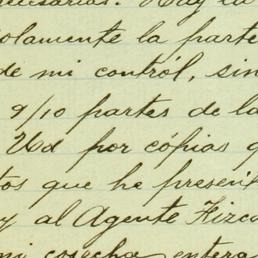 necesarias. Hay la
solamente la parte
de mi contról, sin
9/10 partes de la
Ud por cópias q
tos que he present
y al Agente Fisca
mi cosecha entera